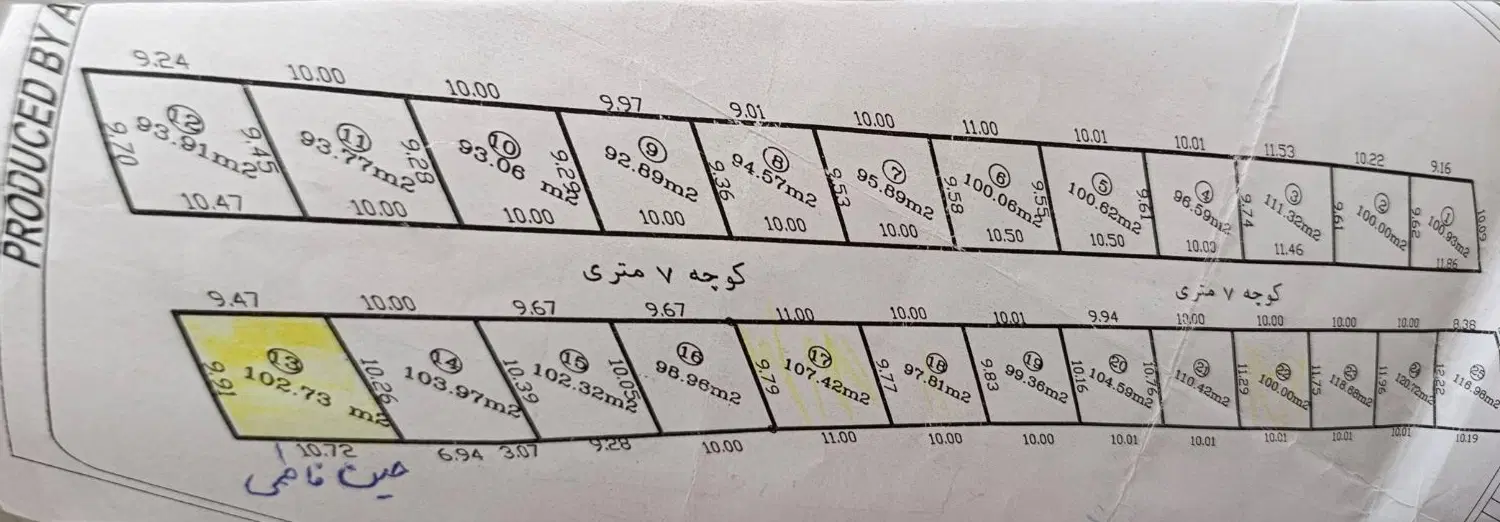 PRODUCED BY A
9.24 10.00 10.00 9.97 9.01 10.00 11.00 10.01 10.01 11.53 10.22 9.16
12 11 10 9 8 7 6 5 4 3 2 1
93.91m2 93.77m2 93.06 m2 92.89m2 94.57m2 95.89m2 100.06m2 100.62m2 96.59m2 111.32m2 100.00m2 100.93m2
9.70 9.45 9.28 9.29 9.36 9.53 9.58 9.55 9.61 9.74 9.61 9.62
10.47 10.00 10.00 10.00 10.00 10.00 10.50 10.50 10.00 11.46 11.86
کوچه ۷ متری کوچه ۷ متری
9.47 10.00 9.67 9.67 11.00 10.00 10.01 9.94 10.00 10.00 10.00 10.00 8.38
13 14 15 16 17 18 19 20 21 22 23 24 25
102.73 m2 103.97m2 102.32m2 98.96m2 107.42m2 97.81m2 99.36m2 104.59m2 110.42m2 100.00m2 120.72m2 116.98m2
9.91 10.26 10.39 10.05 9.79 9.77 9.83 10.16 10.76 11.29 11.75 11.96 12.22
10.72 6.94 3.07 9.28 10.00 11.00 10.00 10.00 10.01 10.01 10.01 10.01 10.01 10.19